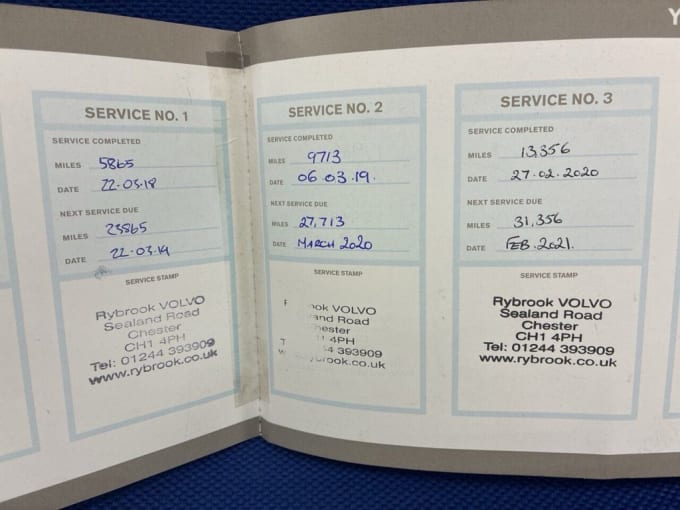 Y
SERVICE NO. 1
SERVICE COMPLETED
MILES 5865
DATE 22.03.18
NEXT SERVICE DUE
MILES 23865
DATE 22.03.19
SERVICE STAMP
Rybrook VOLVO
Sealand Road
Chester
CH1 4PH
Tel: 01244 393909
www.rybrook.co.uk
SERVICE NO. 2
SERVICE COMPLETED
MILES 9713
DATE 06.03.19.
NEXT SERVICE DUE
MILES 27,713
DATE MARCH 2020
SERVICE STAMP
ook VOLVO
and Road
hester
4PH
44 393909
rook.co.uk
SERVICE NO. 3
SERVICE COMPLETED
MILES 13,356
DATE 27.02.2020
NEXT SERVICE DUE
MILES 31,356
DATE FEB.2021.
SERVICE STAMP
Rybrook VOLVO
Sealand Road
Chester
CH1 4PH
Tel: 01244 393909
www.rybrook.co.uk